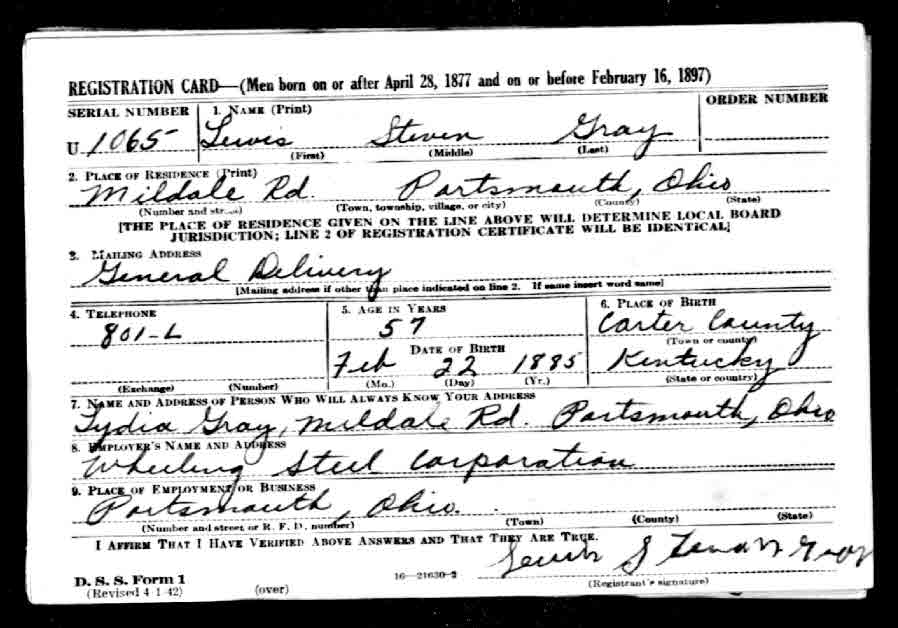 REGISTRATION CARD—(Men born on or after April 28, 1877 and on or before February 16, 1897)
SERIAL NUMBER 1. NAME (Print) ORDER NUMBER
U 1065 Lewis Steven Gray
(First) (Middle) (Last)
2. PLACE OF RESIDENCE (Print)
Mildale Rd. Portsmouth, Ohio
(Number and street) (Town, township, village, or city) (County) (State)
[THE PLACE OF RESIDENCE GIVEN ON THE LINE ABOVE WILL DETERMINE LOCAL BOARD
JURISDICTION; LINE 2 OF REGISTRATION CERTIFICATE WILL BE IDENTICAL]
3. MAILING ADDRESS
General Delivery
[Mailing address if other than place indicated on line 2. If same insert word same]
4. TELEPHONE 5. AGE IN YEARS 6. PLACE OF BIRTH
801-L 57 Carter County
DATE OF BIRTH (Town or county)
Feb 22 1885 Kentucky
(Exchange) (Number) (Mo.) (Day) (Yr.) (State or country)
7. NAME AND ADDRESS OF PERSON WHO WILL ALWAYS KNOW YOUR ADDRESS
Lydia Gray, Mildale Rd. Portsmouth, Ohio
8. EMPLOYER'S NAME AND ADDRESS
Wheeling Steel Corporation
9. PLACE OF EMPLOYMENT OR BUSINESS
Portsmouth, Ohio.
(Number and street or R. F. D. number) (Town) (County) (State)
I AFFIRM THAT I HAVE VERIFIED ABOVE ANSWERS AND THAT THEY ARE TRUE.
D. S. S. Form 1 16—21630-2
(Revised 4-1-42) (over) (Registrant's signature)